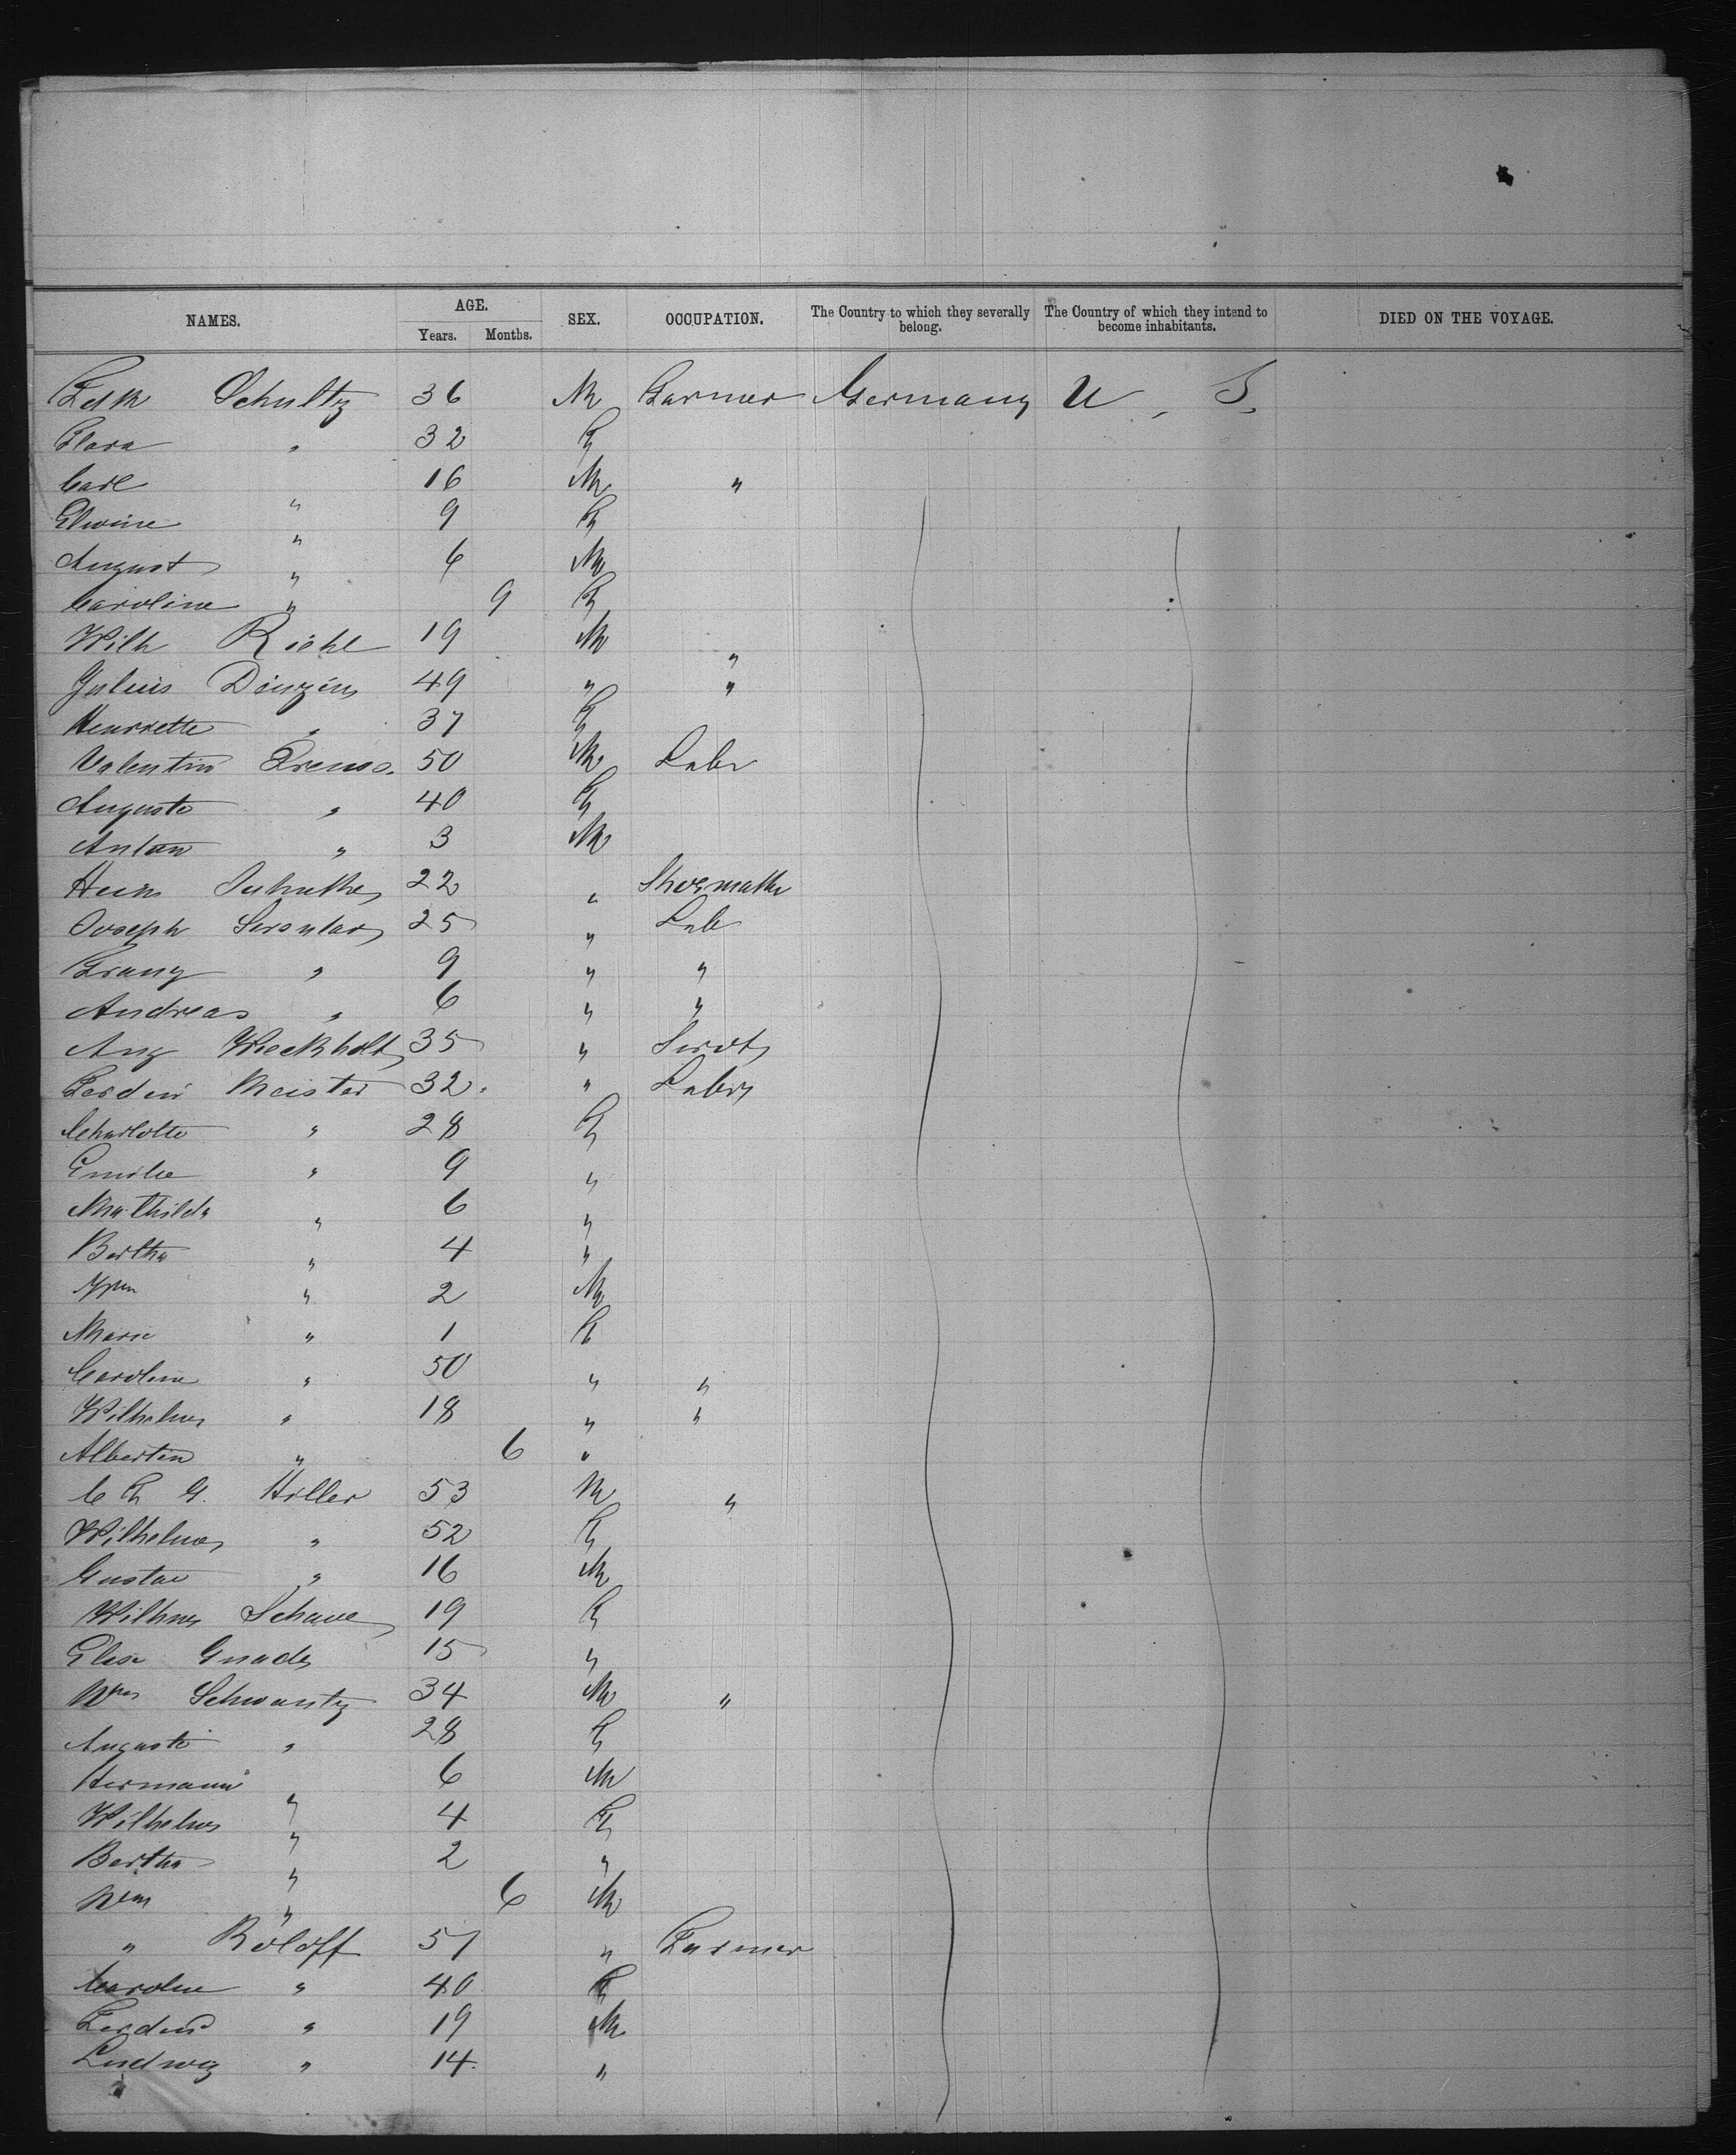 NAMES. AGE. SEX. OCCUPATION. The Country to which they severally belong. The Country of which they intend to become inhabitants. DIED ON THE VOYAGE.
Years. Months.
Schultz 36 M Farmer Germany U. S.
Clara " 32 F
Carl " 16 M "
Elwine " 9 F
August " 6 M
Caroline " 9 F
Wilh Riehl 19 M "
Julius 49 " "
Henriette " 37 F
Valentin 50 M Labr
Auguste " 40 F
Anton " 3 M
22 " Shoemaker
Joseph 25 " Lab
Franz " 9 " "
Andreas " 6 " "
Aug Wieckholt 35 " Servt
Ferdin Meister 32. " Labr
Charlotte " 28 F
Emilie " 9 "
Mathilda " 6 "
Bertha " 4 "
Wm " 2 M
Marie " 1 F
Caroline " 50 " "
Wilhelm " 18 " "
Albertin " 6 "
C F G. Hiller 53 M "
Wilhelme " 52 F
Gustav " 16 M
Wilhm Schave 19 F
Elise Gnade 15 "
Wm Schwantz 34 M "
Auguste " 28 F
Hermann " 6 M
Wilhelm " 4 F
Bertha " 2 "
Wm " 6 M
" Roloff 57 " Farmer
Caroline " 40 F
Ferdin " 19 M
Ludwig " 14. "